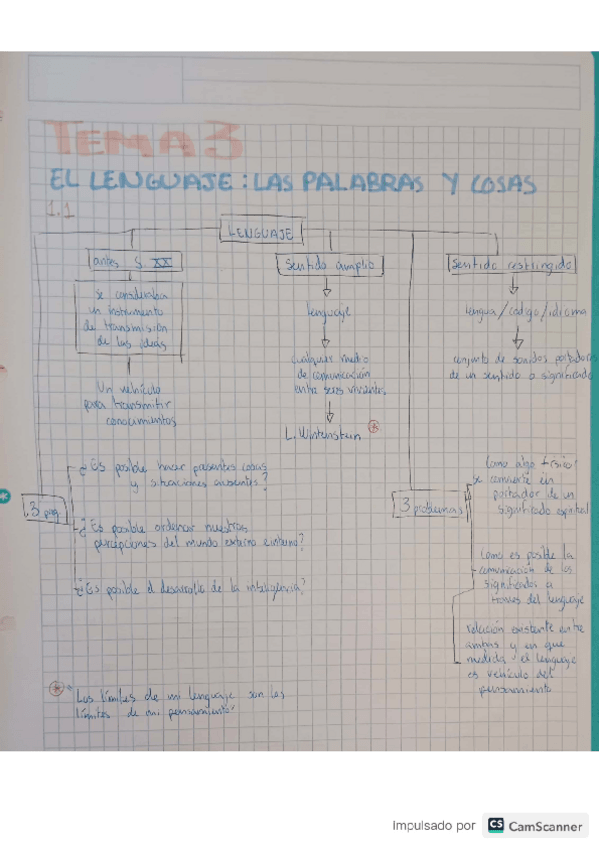 TEMA 3
EL LENGUAJE: LAS PALABRAS Y COSAS
1.1
LENGUAJE
antes S. XX
se consideraba
un instrumento
de transmisión
de las ideas
Un vehículo
para transmitir
conocimientos
Sentido amplio
lenguaje
cualquier medio
de comunicación
entre seres vivientes.
L. Wintenstein *
Sentido restringido
lengua/código/idioma
conjunto de sonidos portadores
de un sentido o significado
3
¿Es posible hacer presentes cosas
y situaciones ausentes?
¿Es posible ordenar nuestras
percepciones del mundo externo e interno?
¿Es posible el desarrollo de la inteligencia?
3 problemas
Como algo físico
se convierte en
portador de un
significado espiritual
Como es posible la
comunicación de los
significados a
través del lenguaje
relación existente entre
ambas y en que
medida el lenguaje
es vehículo del
pensamiento
* "Los límites de mi lenguaje son los
límites de mi pensamiento"
Impulsado por CS CamScanner